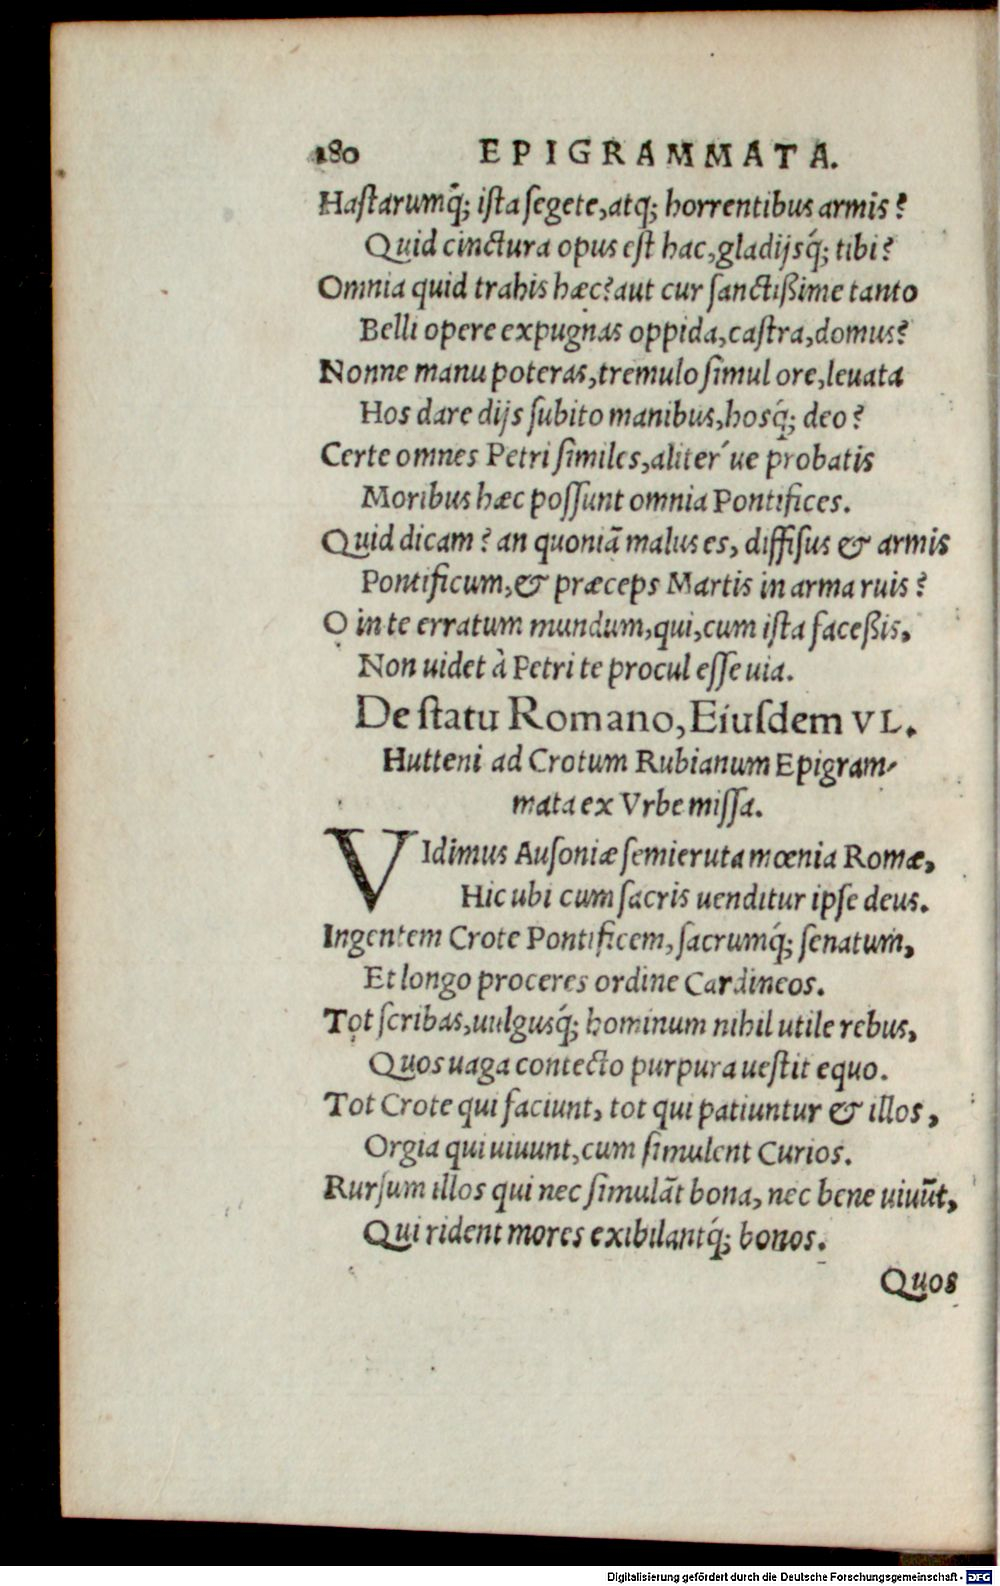 180 EPIGRAMMATA.
Hastarumq́; ista segete, atq; horrentibus armis?
Quid cinctura opus est hac, gladijsq́; tibi?
Omnia quid trahis hæc? aut cur sanctißime tanto
Belli opere expugnas oppida, castra, domus?
Nonne manu poteras, tremulo simul ore, leuata
Hos dare dijs subito manibus, hosq́; deo?
Certe omnes Petri similes, aliter´ue probatis
Moribus hæc possunt omnia Pontifices.
Quid dicam? an quoniã malus es, diffisus & armis
Pontificum, & præceps Martis in arma ruis?
O in te erratum mundum, qui, cum ista faceßis,
Non uidet à Petri te procul esse uia.
De statu Romano, Eiusdem VL.
Hutteni ad Crotum Rubianum Epigram-
mata ex Vrbe missa.
VIdimus Ausoniæ semieruta mœnia Romæ,
Hic ubi cum sacris uenditur ipse deus.
Ingentem Crote Pontificem, sacrumq́; senatum,
Et longo proceres ordine Cardineos.
Tot scribas, uulgusq́; hominum nihil utile rebus,
Quos uaga contecto purpura uestit equo.
Tot Crote qui faciunt, tot qui patiuntur & illos,
Orgia qui uiuunt, cum simulent Curios.
Rursum illos qui nec simulãt bona, nec bene uiuũt,
Qui rident mores exibilantq́; bonos.
Quos
Digitalisierung gefördert durch die Deutsche Forschungsgemeinschaft - DFG